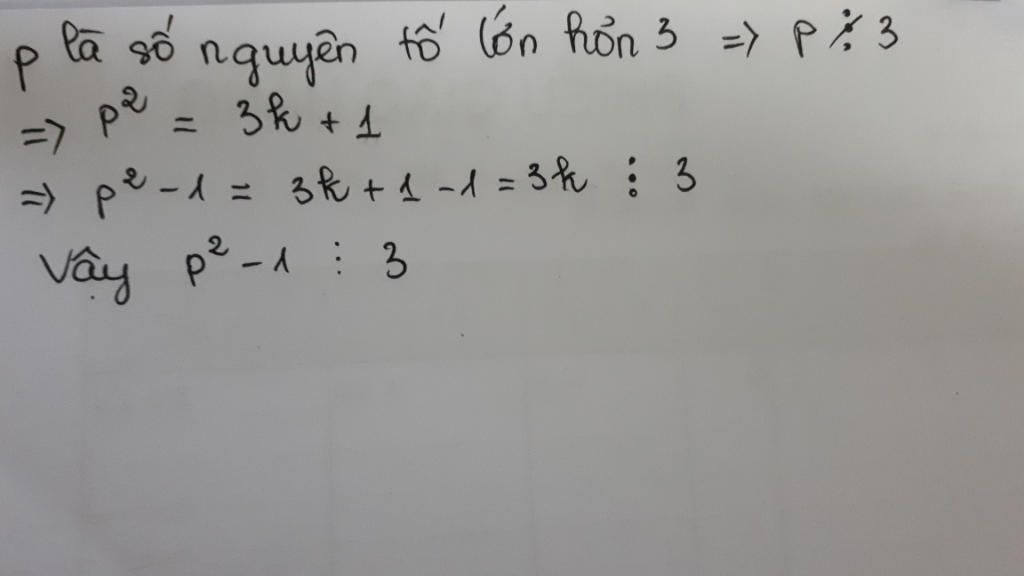 p là số nguyên tố lớn hơn 3 => p ⋮̸ 3
=> p² = 3k + 1
=> p² - 1 = 3k + 1 - 1 = 3k ⋮ 3
Vậy p² - 1 ⋮ 3